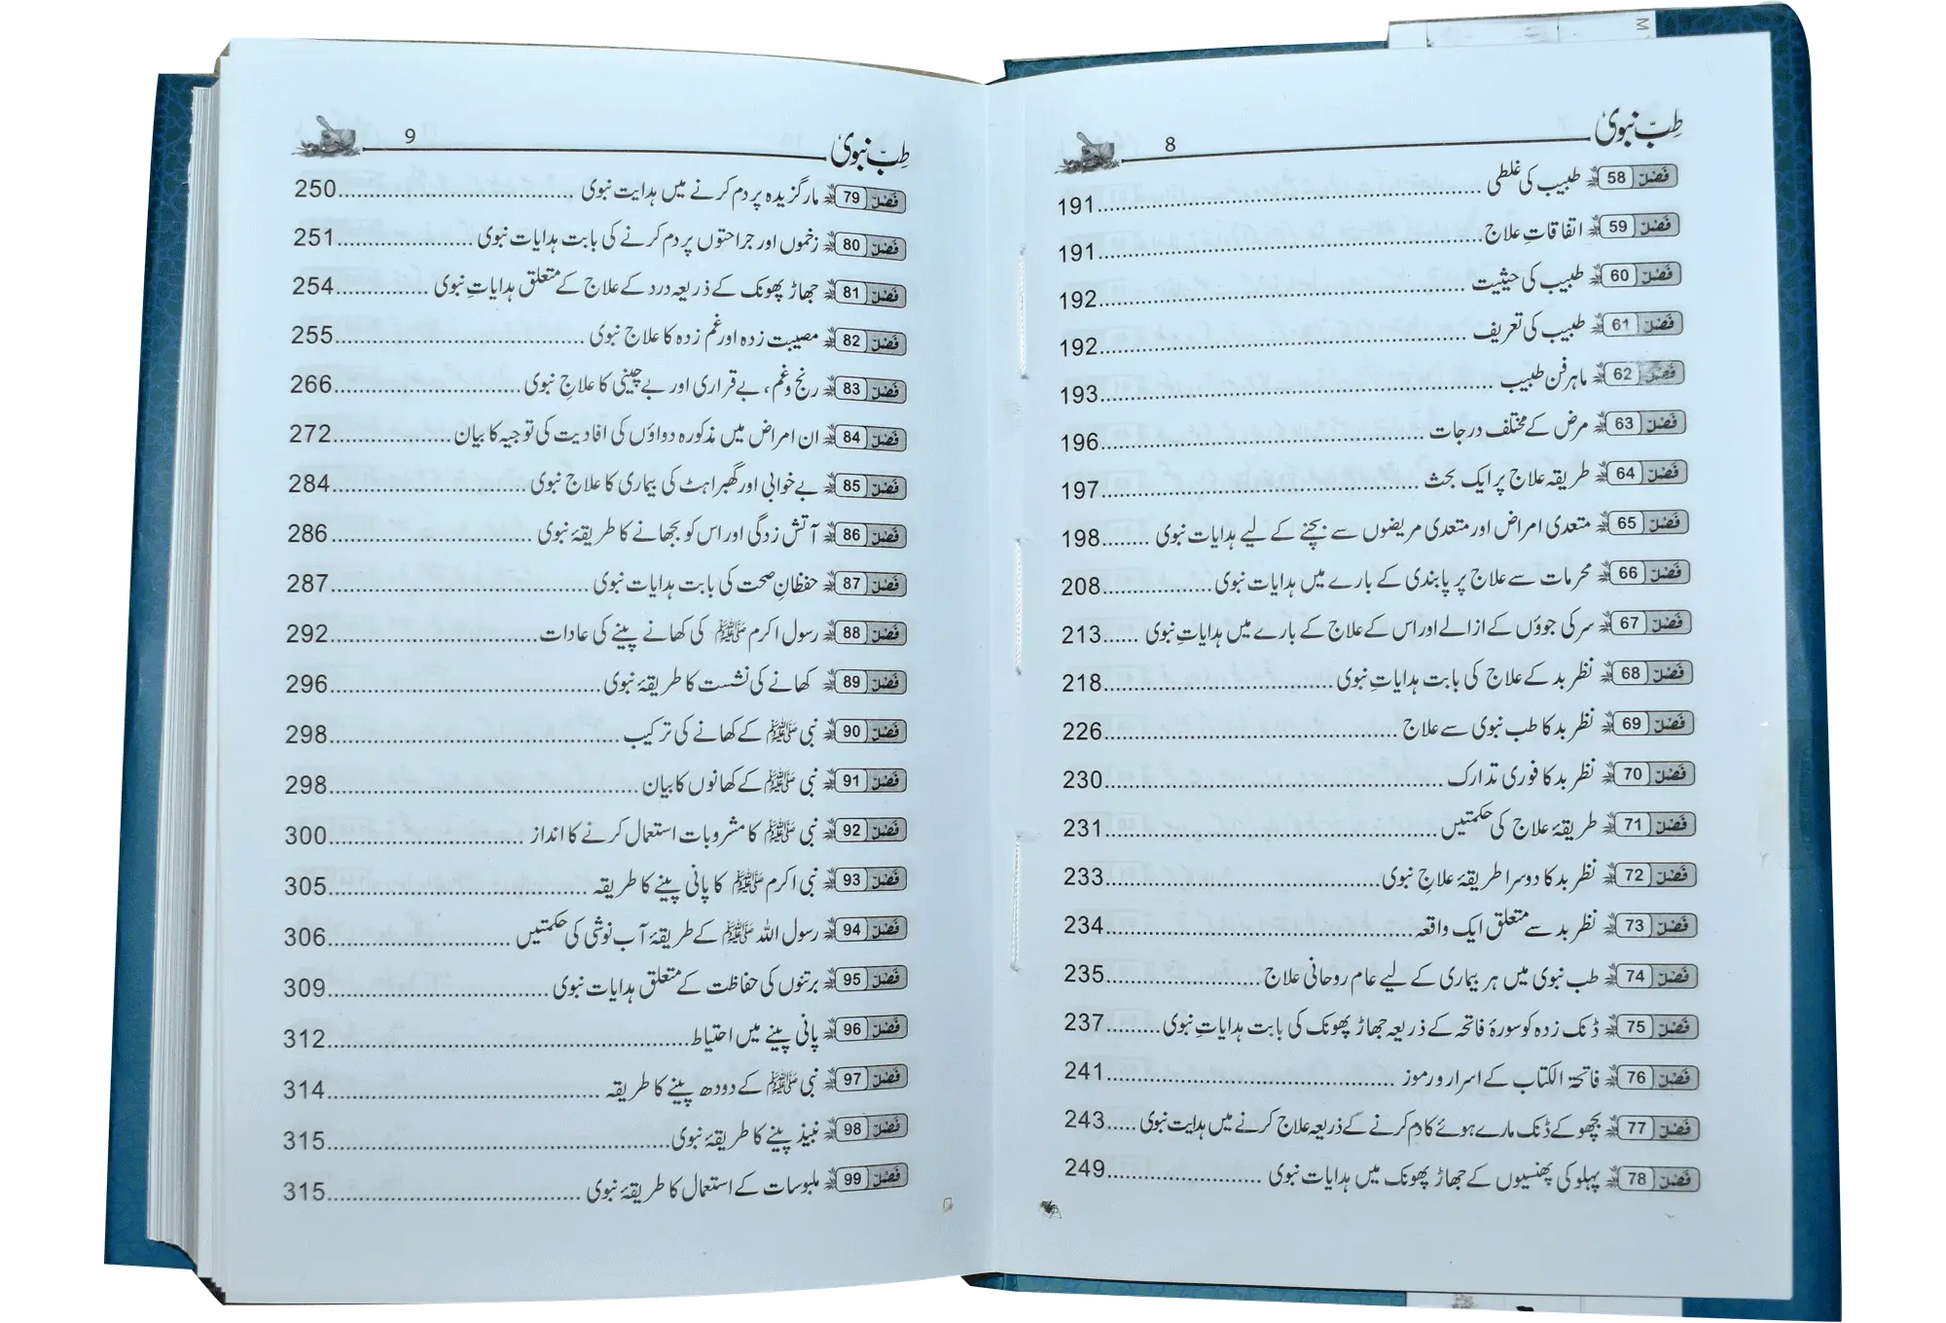 طبِّ نبوی
8
فصل 58 طبیب کی غلطی 191
فصل 59 اتفاقاتِ علاج 191
فصل 60 طبیب کی حیثیت 192
فصل 61 طبیب کی تعریف 192
فصل 62 ماہر فن طبیب 193
فصل 63 مرض کے مختلف درجات 196
فصل 64 طریقہ علاج پر ایک بحث 197
فصل 65 متعدی امراض اور متعدی مریضوں سے بچنے کے لیے ہدایات نبوی 198
فصل 66 محرمات سے علاج پر پابندی کے بارے میں ہدایات نبوی 208
فصل 67 سر کی جوؤں کے ازالے اور اس کے علاج کے بارے میں ہدایاتِ نبوی 213
فصل 68 نظر بد کے علاج کی بابت ہدایاتِ نبوی 218
فصل 69 نظر بد کا طب نبوی سے علاج 226
فصل 70 نظر بد کا فوری تدارک 230
فصل 71 طریقۂ علاج کی حکمتیں 231
فصل 72 نظر بد کا دوسرا طریقۂ علاجِ نبوی 233
فصل 73 نظر بد سے متعلق ایک واقعہ 234
فصل 74 طب نبوی میں ہر بیماری کے لیے عام روحانی علاج 235
فصل 75 ڈنک زدہ کو سورۂ فاتحہ کے ذریعہ جھاڑ پھونک کی بابت ہدایاتِ نبوی 237
فصل 76 فاتحۃ الکتاب کے اسرار و رموز 241
فصل 77 بچھو کے ڈنک مارے ہوئے کا دم کرنے کے ذریعہ علاج کرنے میں ہدایت نبوی 243
فصل 78 پہلو کی پھنسیوں کے جھاڑ پھونک میں ہدایات نبوی 249
طبِّ نبوی
9
فصل 79 مارگزیدہ پر دم کرنے میں ہدایت نبوی 250
فصل 80 زخموں اور جراحتوں پر دم کرنے کی بابت ہدایات نبوی 251
فصل 81 جھاڑ پھونک کے ذریعہ درد کے علاج کے متعلق ہدایاتِ نبوی 254
فصل 82 مصیبت زدہ اور غم زدہ کا علاج نبوی 255
فصل 83 رنج و غم، بے قراری اور بے چینی کا علاجِ نبوی 266
فصل 84 ان امراض میں مذکورہ دواؤں کی افادیت کی توجیہ کا بیان 272
فصل 85 بے خوابی اور گھبراہٹ کی بیماری کا علاج نبوی 284
فصل 86 آتش زدگی اور اس کو بجھانے کا طریقۂ نبوی 286
فصل 87 حفظانِ صحت کی بابت ہدایات نبوی 287
فصل 88 رسول اکرم ﷺ کی کھانے پینے کی عادات 292
فصل 89 کھانے کی نشست کا طریقۂ نبوی 296
فصل 90 نبی ﷺ کے کھانے کی ترکیب 298
فصل 91 نبی ﷺ کے کھانوں کا بیان 298
فصل 92 نبی ﷺ کا مشروبات استعمال کرنے کا انداز 300
فصل 93 نبی اکرم ﷺ کا پانی پینے کا طریقہ 305
فصل 94 رسول اللہ ﷺ کے طریقۂ آب نوشی کی حکمتیں 306
فصل 95 برتنوں کی حفاظت کے متعلق ہدایات نبوی 309
فصل 96 پانی پینے میں احتیاط 312
فصل 97 نبی ﷺ کے دودھ پینے کا طریقہ 314
فصل 98 نبیذ پینے کا طریقۂ نبوی 315
فصل 99 ملبوسات کے استعمال کا طریقۂ نبوی 315